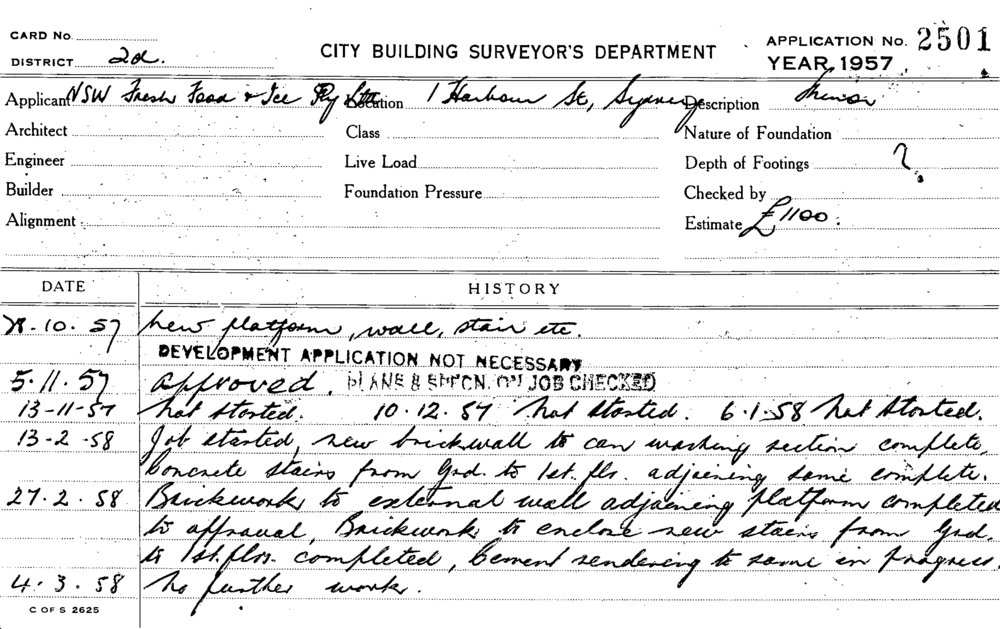 CARD No.
DISTRICT 2d.
CITY BUILDING SURVEYOR'S DEPARTMENT
APPLICATION No. 2501
YEAR 1957
Applicant NSW Fresh Food & Ice Pty Ltd Location 1 Harbour St, Sydney Description Minor
Architect Class Nature of Foundation
Engineer Live Load Depth of Footings ?
Builder Foundation Pressure Checked by
Alignment Estimate £1100.
DATE HISTORY
28.10.57 New platform, wall, stair etc.
DEVELOPMENT APPLICATION NOT NECESSARY
5.11.57 Approved. PLANS & SPECN. ON JOB CHECKED
13-11-57 Not started. 10.12.57 Not started. 6.1.58 Not started.
13-2-58 Job started, new brickwall to can washing section complete,
Concrete stairs from Grd. to 1st. flr. adjoining same complete.
27.2.58 Brickwork to external wall adjoining platform completed
to approval, Brickwork to enclose new stairs from Grd.
to 1st. floor. completed, Cement rendering to same in progress.
4.3.58 No further work.
C OF S 2625